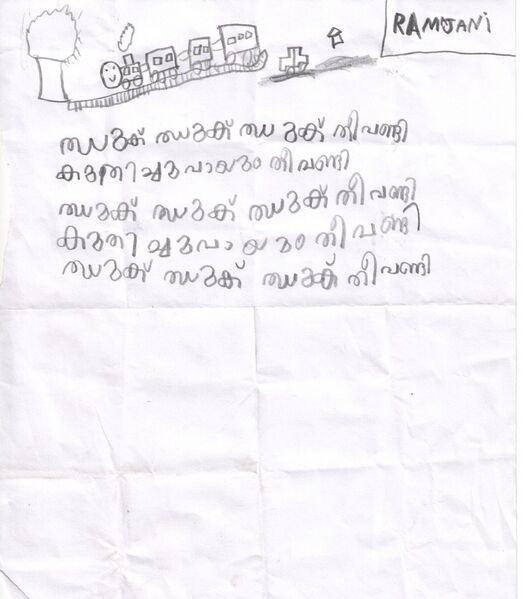 RAMJANI
ഝുക് ഝുക് ഝുക് തീവണ്ടി
കുതിച്ചുപായും തീവണ്ടി
ഝുക് ഝുക് ഝുക് തീവണ്ടി
കുതിച്ചുപായും തീവണ്ടി
ഝുക് ഝുക് ഝുക് തീവണ്ടി